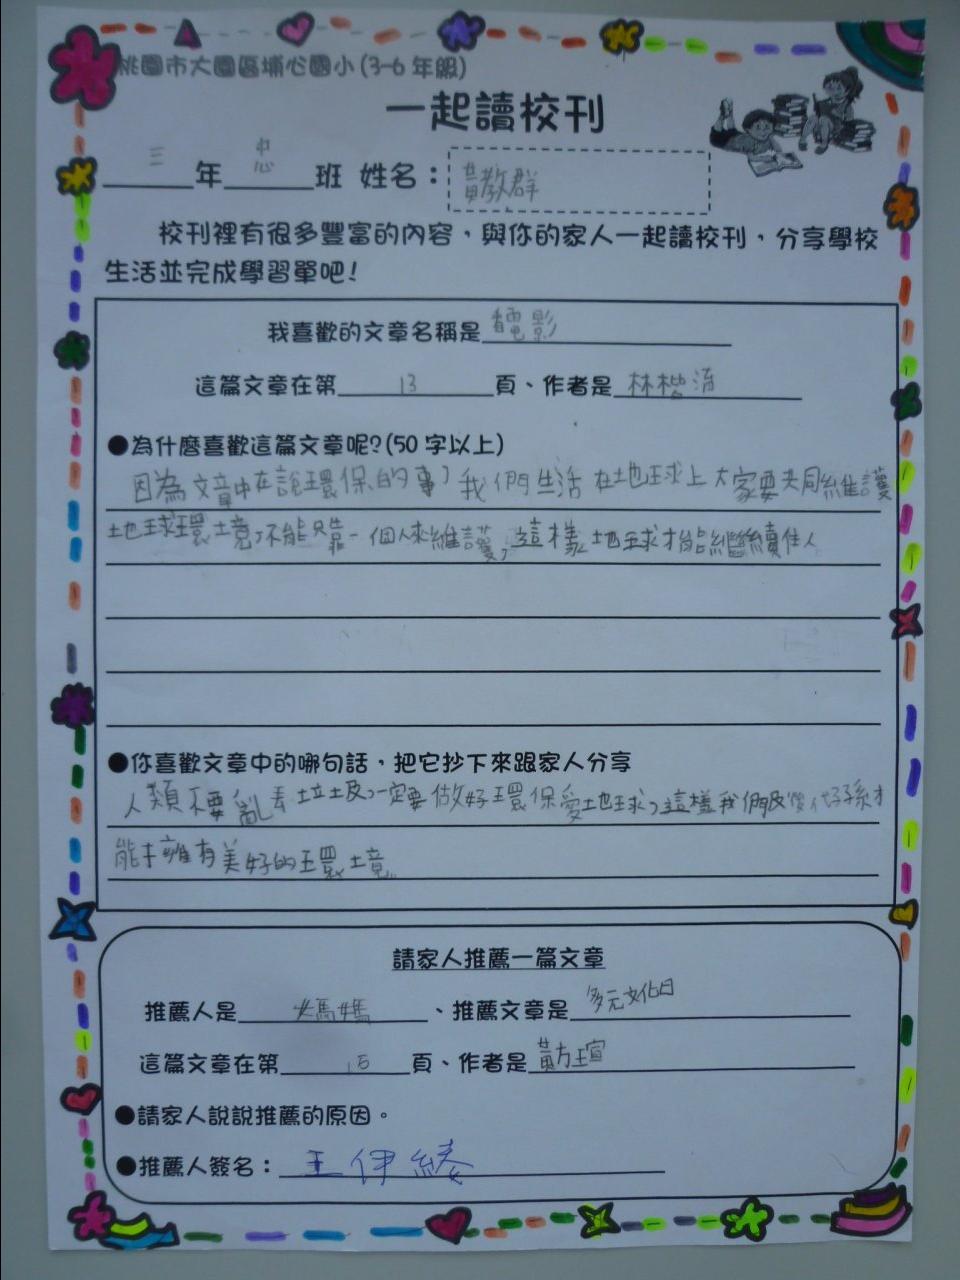 桃園市大園區埔心國小(3-6年級)
一起讀校刊
三年忠班 姓名：黃教群
校刊裡有很多豐富的內容，與你的家人一起讀校刊，分享學校
生活並完成學習單吧！
我喜歡的文章名稱是看電影
這篇文章在第13頁、作者是林楷清
●為什麼喜歡這篇文章呢?(50字以上)
因為文章中在說環保的事，我們生活在地球上大家要共同維護
地球環境，不能只靠一個人來維護，這樣地球才能繼續住人
●你喜歡文章中的哪句話，把它抄下來跟家人分享
人類不要亂丟垃圾，一定要做好環保愛地球，這樣我們及後代子孫才
能擁有美好的環境。
請家人推薦一篇文章
推薦人是媽媽、推薦文章是多元文化日
這篇文章在第15頁、作者是黃方瑄
●請家人說說推薦的原因。
●推薦人簽名：王伊綾